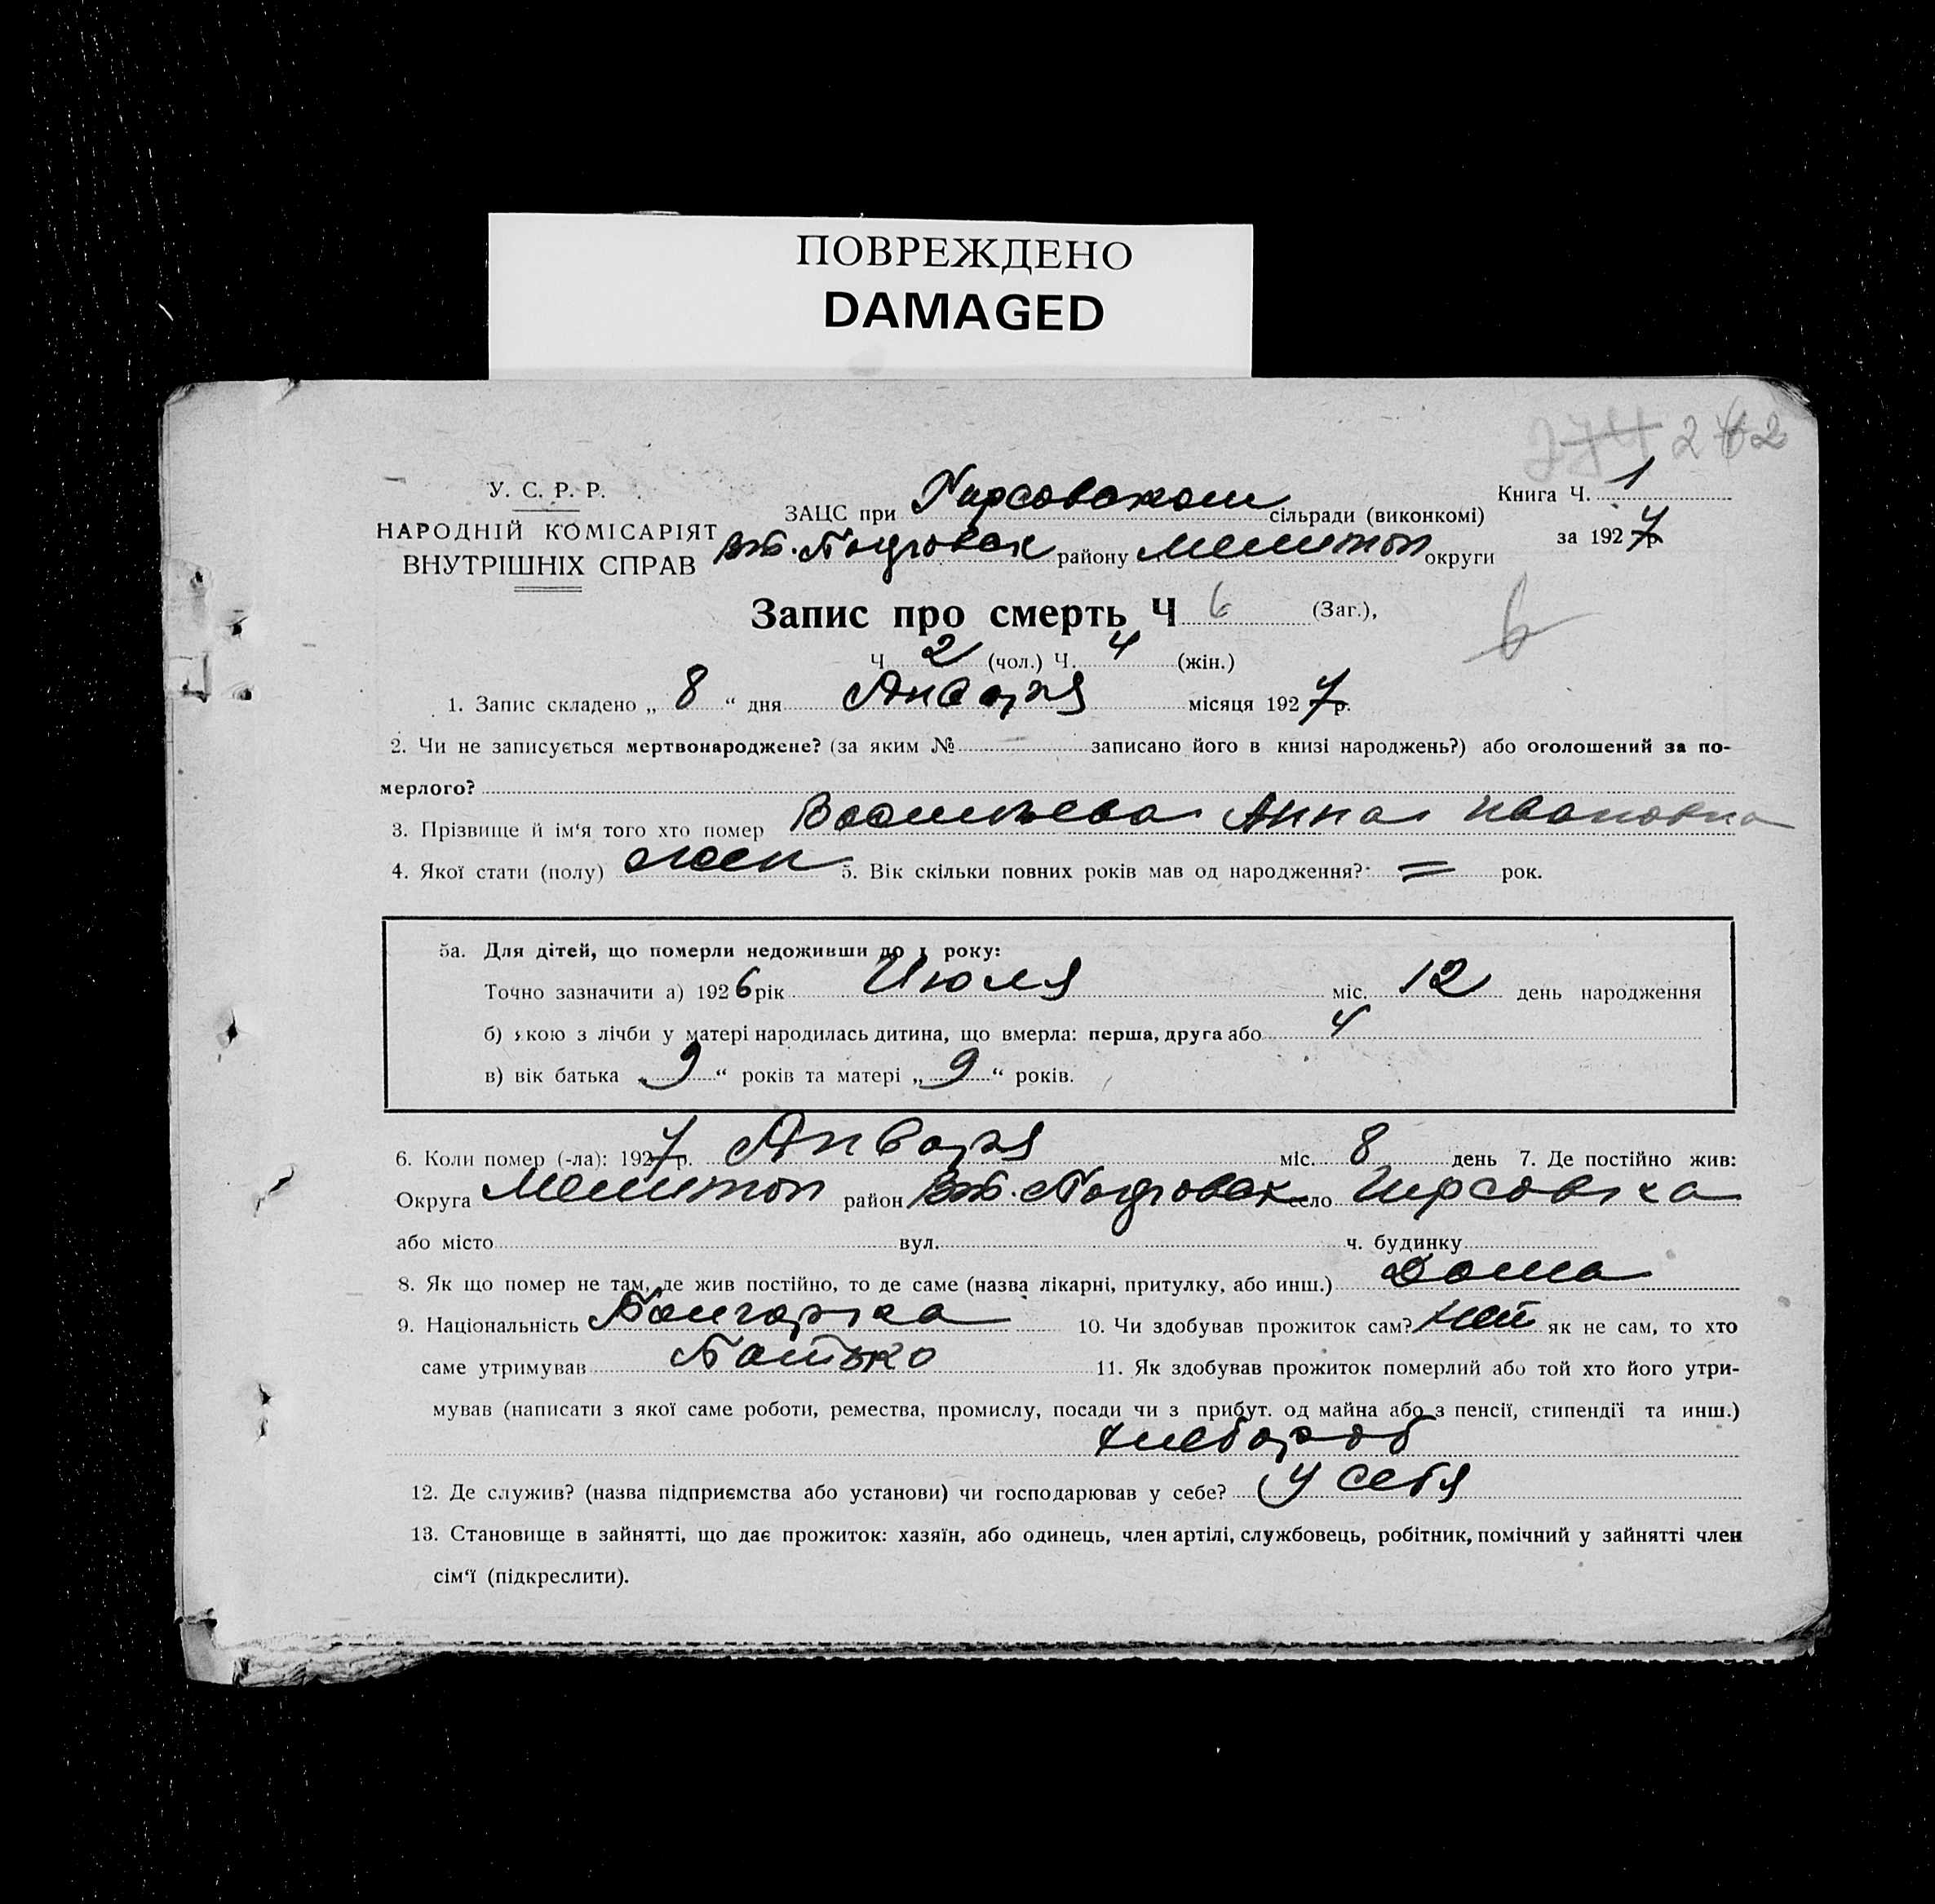 ПОВРЕЖДЕНО
DAMAGED
274 2 62
У. С. Р. Р.
НАРОДНІЙ КОМІСАРІЯТ
ВНУТРІШНІХ СПРАВ
ЗАЦС при Гирсовском сільради (виконкомі)
районy Мелитоп округи
Книга Ч. 1
за 1927 р.
Запис про смерть Ч 6 (Заг.),
6
Ч 2 (чол.) Ч. 4 (жін.)
1. Запис складено „ 8 “ дня Января місяця 1927 р.
2. Чи не записується мертвонароджене? (за яким № записано його в книзі народжень?) або оголошений за по-
мерлого?
3. Прізвище й ім‘я того хто помер Васильева Анна Ивановна
4. Якої стати (полу) жен 5. Вік скільки повних років мав од народження? = рок.
5а. Для дітей, що померли недоживши до 1 року:
Точно зазначити а) 1926 рік Июля міс. 12 день народження
б) якою з лічби у матері народилась дитина, що вмерла: перша, друга або 4
в) вік батька „ 9 “ років та матері „ 9 “ років.
6. Коли помер (-ла): 1927 р. Января міс. 8 день 7. Де постійно жив:
Округа Мелитоп район село Гирсовка
або місто вул. ч. будинку
8. Як що помер не там, де жив постійно, то де саме (назва лікарні, притулку, або инш.) Дома
9. Національність Болгарка 10. Чи здобував прожиток сам? Нет як не сам, то хто
саме утримував Батько 11. Як здобував прожиток померлий або той хто його утри-
мував (написати з якої саме роботи, ремества, промислу, посади чи з прибут. од майна або з пенсії, стипендії та инш.)
хлебороб
12. Де служив? (назва підприємства або установи) чи господарював у себе? У себя
13. Становище в зайнятті, що дає прожиток: хазяїн, або одинець, член артілі, службовець, робітник, помічний у зайнятті член
сім‘ї (підкреслити).